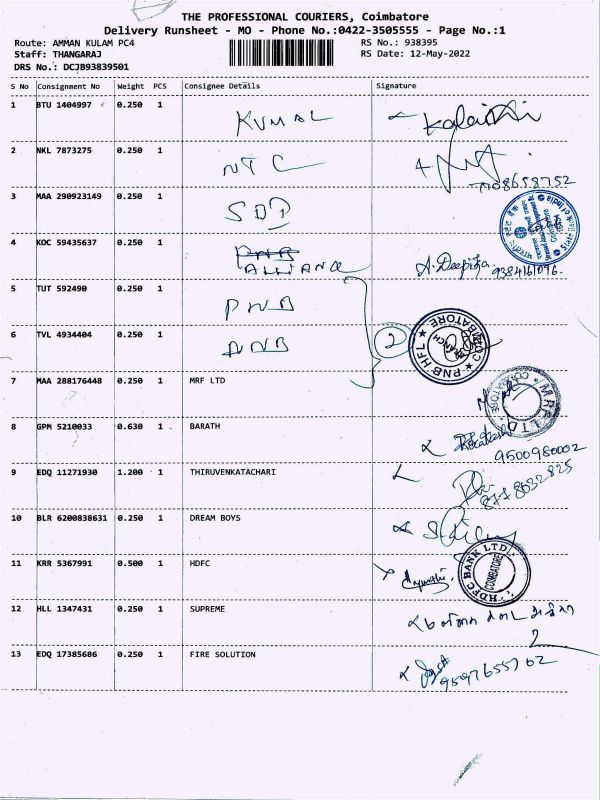 THE PROFESSIONAL COURIERS, Coimbatore
Delivery Runsheet - MO - Phone No.:0422-3505555 - Page No.:1
Route: AMMAN KULAM PC4 RS No.: 938395
Staff: THANGARAJ RS Date: 12-May-2022
DRS No.: DCJB93839501
S No Consignment No Weight PCS Consignee Details Signature
1 BTU 1404997 0.250 1 KUMAL
2 NKL 7873275 0.250 1 NTC
7708658752
3 MAA 290923149 0.250 1
State Bank of India
4 KOC 59435637 0.250 1 ALLIANCE A. Deepika 9384161096.
5 TUT 592490 0.250 1 PNB
6 TVL 4934404 0.250 1 PNB 2
PNB HFL COIMBATORE BRANCH
7 MAA 288176448 0.250 1 MRF LTD
MRF LTD COIMBATORE
8 GPM 5210033 0.630 1 BARATH
9500980002
9 EDQ 11271930 1.200 1 THIRUVENKATACHARI
8778032825
10 BLR 6200838631 0.250 1 DREAM BOYS
11 KRR 5367991 0.500 1 HDFC
HDFC BANK LTD COIMBATORE
12 HLL 1347431 0.250 1 SUPREME
13 EDQ 17385686 0.250 1 FIRE SOLUTION
9597655762